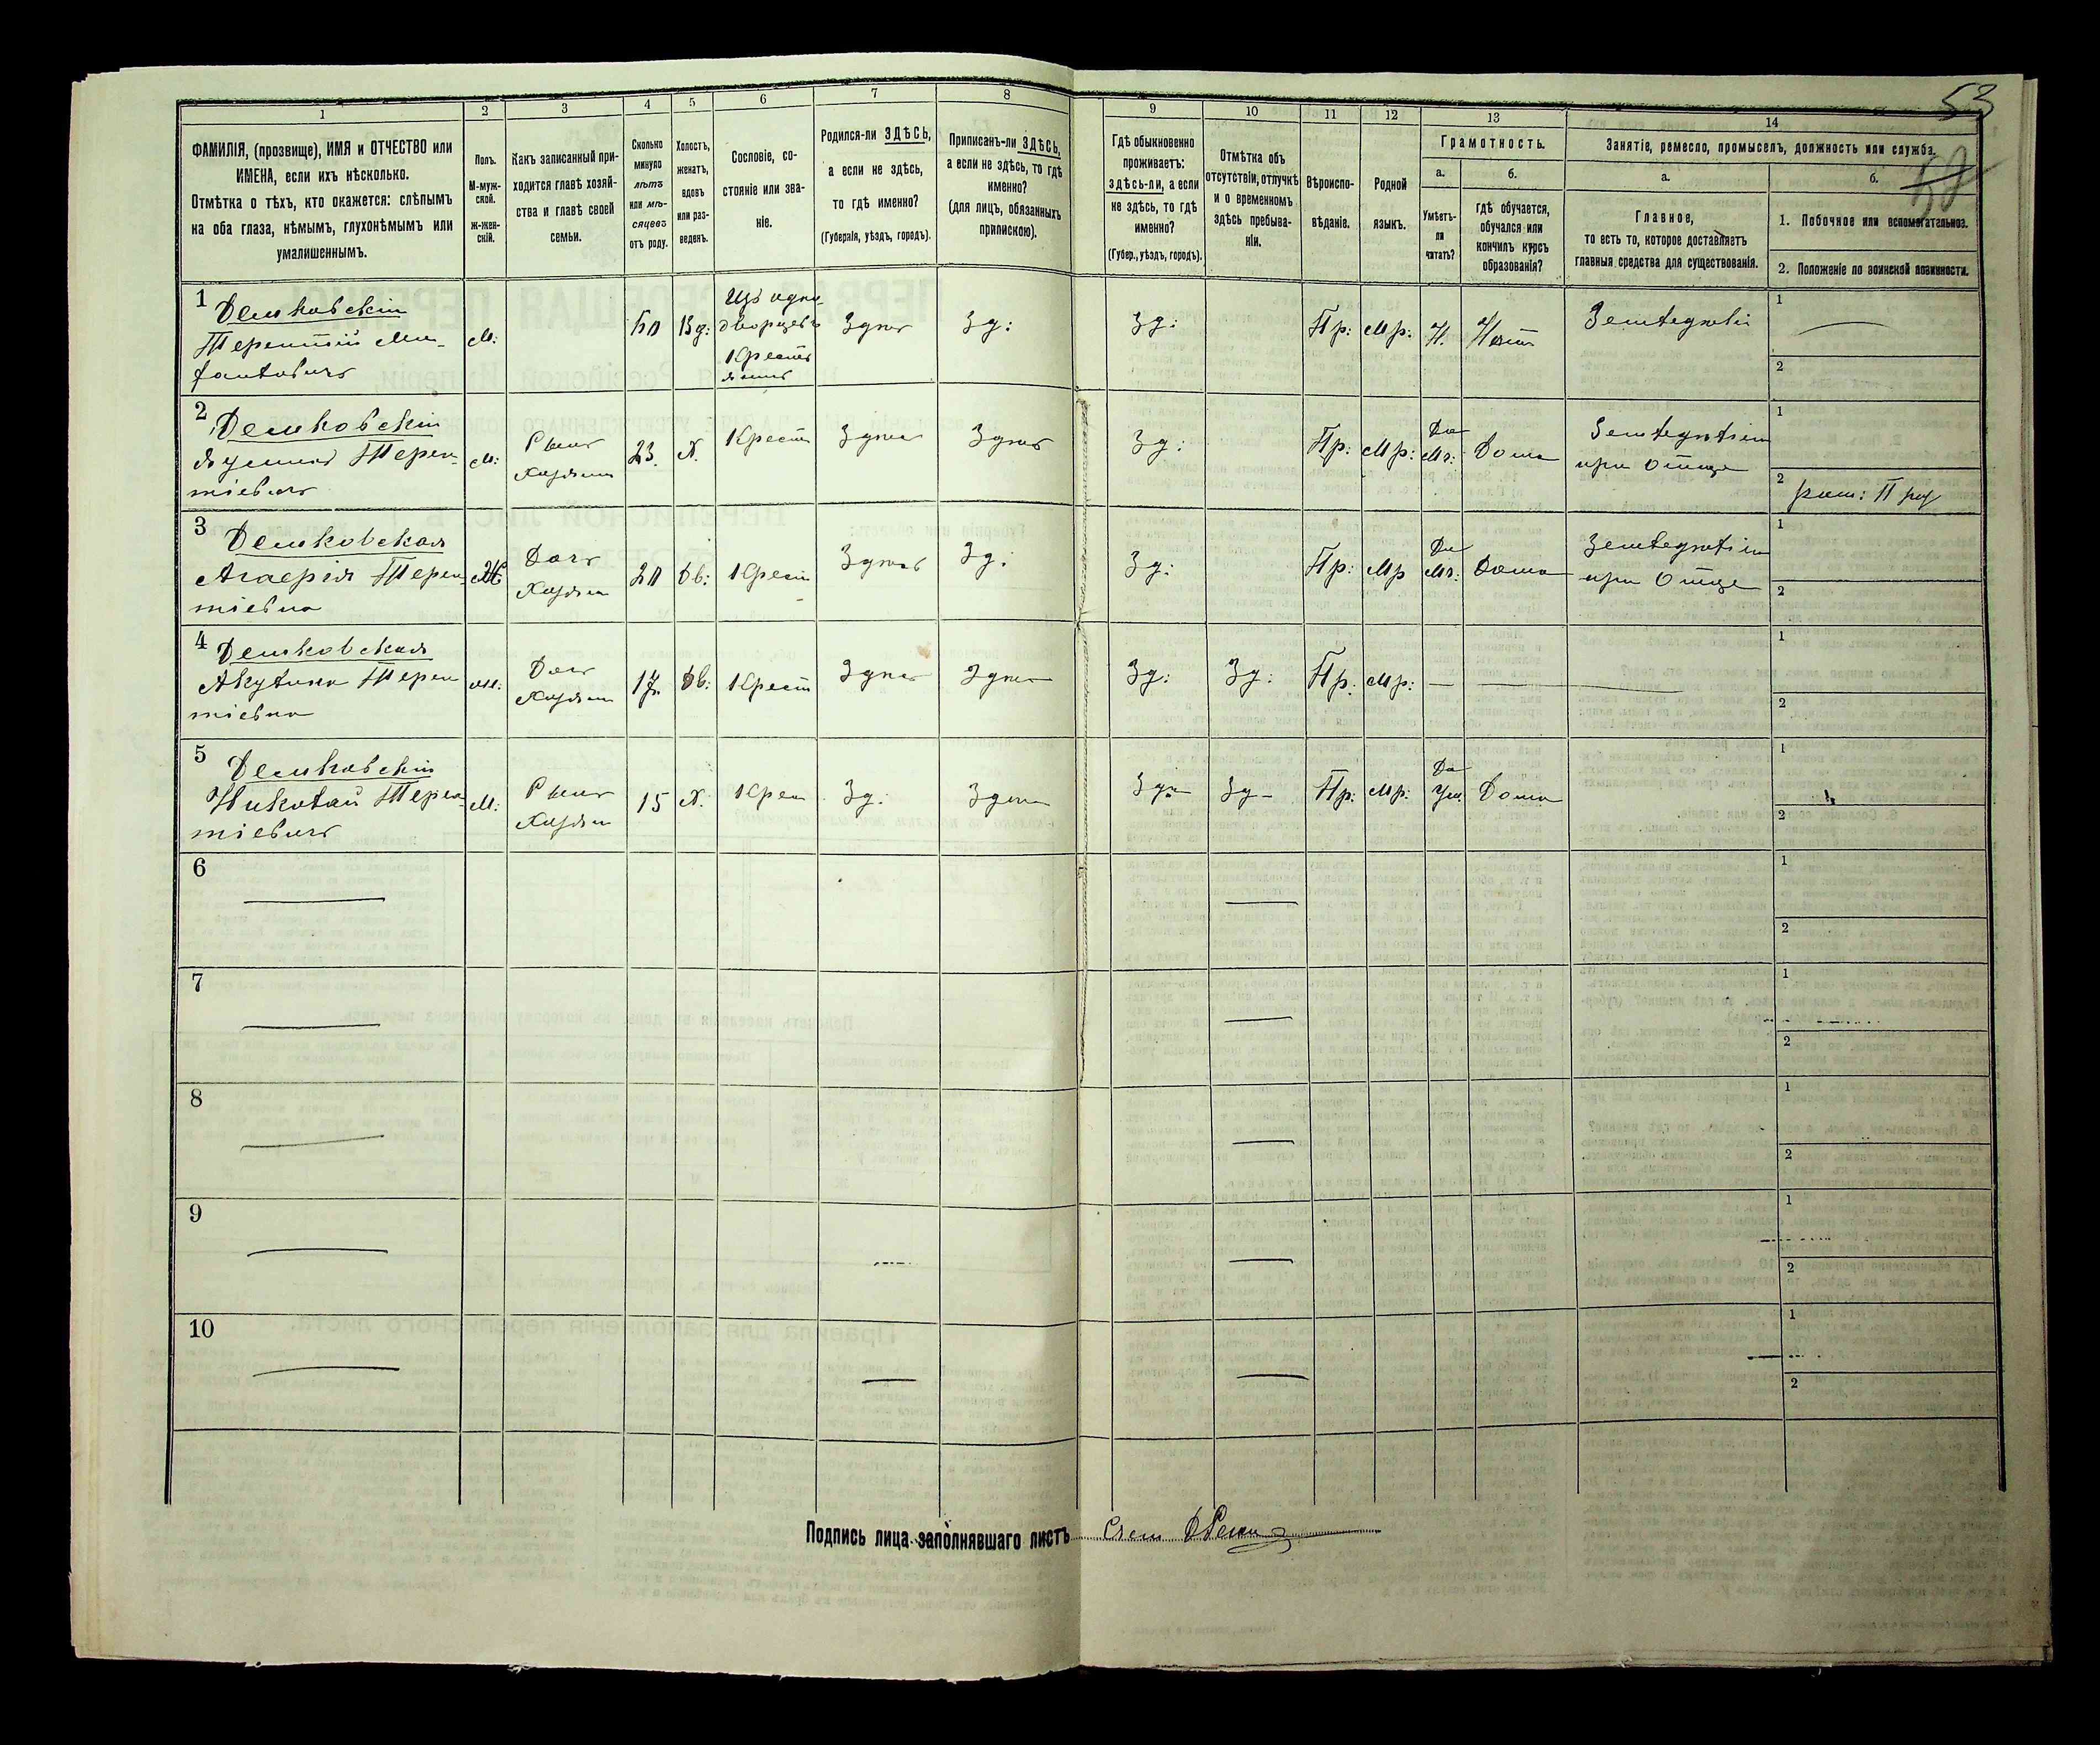 53
1
2
3
4
5
6
7
8
9
10
11
12
13
14
ФАМИЛІЯ, (прозвище), ИМЯ и ОТЧЕСТВО или
ИМЕНА, если ихъ нѣсколько.
Отмѣтка о тѣхъ, кто окажется: слѣпымъ
на оба глаза, нѣмымъ, глухонѣмымъ или
умалишеннымъ.
Полъ.
М-муж-
ской.
Ж-жен-
скій.
Какъ записанный при-
ходится главѣ хозяй-
ства и главѣ своей
семьи.
Сколько
минуло
лѣтъ
или мѣ-
сяцевъ
отъ роду.
Холостъ,
женатъ,
вдовъ
или раз-
веденъ.
Сословіе, со-
стояніе или зва-
ніе.
Родился-ли ЗДѢСЬ,
а если не здѣсь,
то гдѣ именно?
(Губернія, уѣздъ, городъ).
Приписанъ-ли ЗДѢСЬ,
а если не здѣсь, то гдѣ
именно?
(для лицъ, обязанныхъ
припискою).
Гдѣ обыкновенно
проживаетъ:
здѣсь-ли, а если
не здѣсь, то гдѣ
именно?
(Губер., уѣздъ, городъ).
Отмѣтка объ
отсутствіи, отлучкѣ
и о временномъ
здѣсь пребыва-
ніи.
Вѣроиспо-
вѣданіе.
Родной
языкъ.
Грамотность.
а.
Умѣетъ-
ли
читать?
б.
гдѣ обучается,
обучался или
кончилъ курсъ
образованія?
Занятіе, ремесло, промыселъ, должность или служба.
а.
Главное,
то есть то, которое доставляетъ
главныя средства для существованія.
б.
1. Побочное или вспомогательное.
2. Положеніе по воинской повинности.
1
Демковскій
Терентій
М:
60
Вд:
Изъ одно-
дворцевъ
Крестья
Зд:
Зд:
Пр:
Мр:
Н.
Нѣтъ
1
2
2
Демковскій
Терен-
тіевичъ
М:
Сынъ
Хозяина
23.
Х.
Крест
Зд:
Пр:
Мр:
Да
Дома
при отце
1
2
3
Демковская
Терен
тіевна
Ж
Дочь
Хозяи
20
Дв:
Крест
Зд:
Зд:
Пр:
Мр
Да
Дома
при Отце
1
2
4
Демковская
Акулина Терен
тіевна
Дочь
Хозяи
17.
Дв:
Крест
Зд:
Зд:
Пр:
Мр:
1
2
5
Демковскій
Николай Терен
тіевичъ
М:
Сынъ
Хозяи
15
Х.
Крес
Зд:
Зд
Пр:
Мр:
Да
Дома
1
2
6
1
2
7
1
2
8
1
2
9
1
2
10
1
2
Подпись лица заполнявшаго листъ